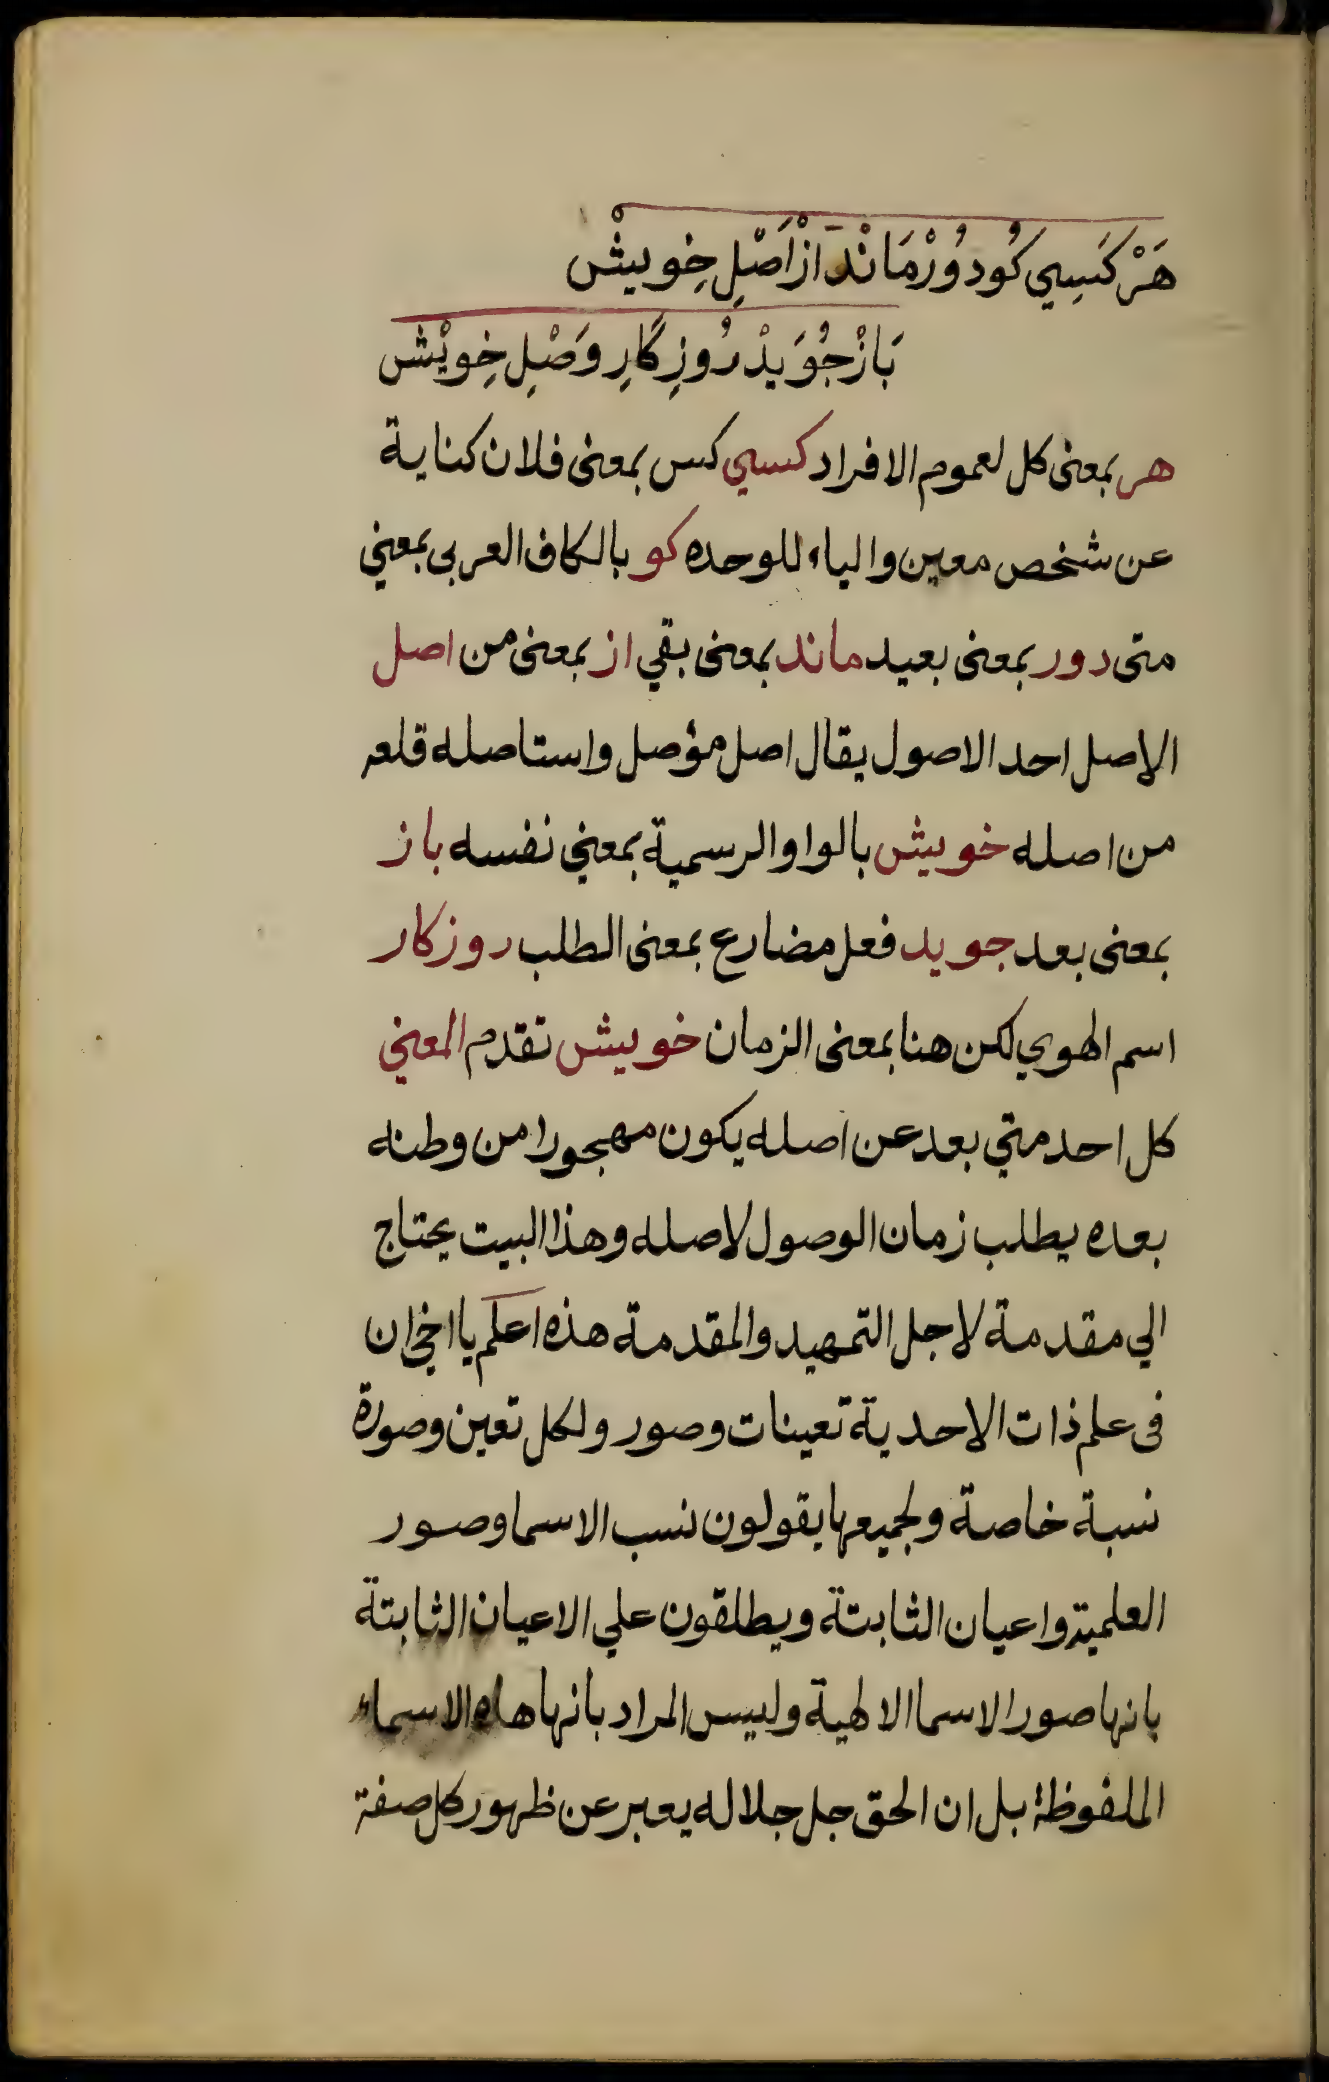 هَرْ كَسِي كُو دُورْ مَانْدْ ازْ اَصْلِ خِويشْ
بَازْ جُوَيدْ رُوزِگارِ وَصْلِ خِويْشْ
هر بمعنى كل لعموم الافراد كسي كس بمعنى فلان كناية
عن شخص معين والياء للوحده كو بالكاف العربى بمعني
متى دور بمعنى بعيد ماند بمعنى بقي از بمعنى من اصل
الاصل احد الاصول يقال اصل مؤصل واستاصله قلعه
من اصله خويش بالواو الرسمية بمعني نفسه باز
بمعنى بعد جويد فعل مضارع بمعنى الطلب روزكار
اسم الهوي لكن هنا بمعنى الزمان خويش تقدم المعني
كل احد متي بعد عن اصله يكون مهجورا من وطنه
بعده يطلب زمان الوصول لاصله وهذا البيت يحتاج
الي مقدمة لاجل التمهيد والمقدمة هذه اعلم يا اخي ان
فى علم ذات الاحدية تعينات وصور ولكل تعين وصورة
نسبة خاصة ولجميعها يقولون نسب الاسما وصور
العلمية واعيان الثابتة ويطلقون علي الاعيان الثابتة
بانها صور الاسما الالهية وليس المراد بانها هذه الاسماء
الملفوظة بل ان الحق جل جلاله يعبر عن ظهور كل صفة